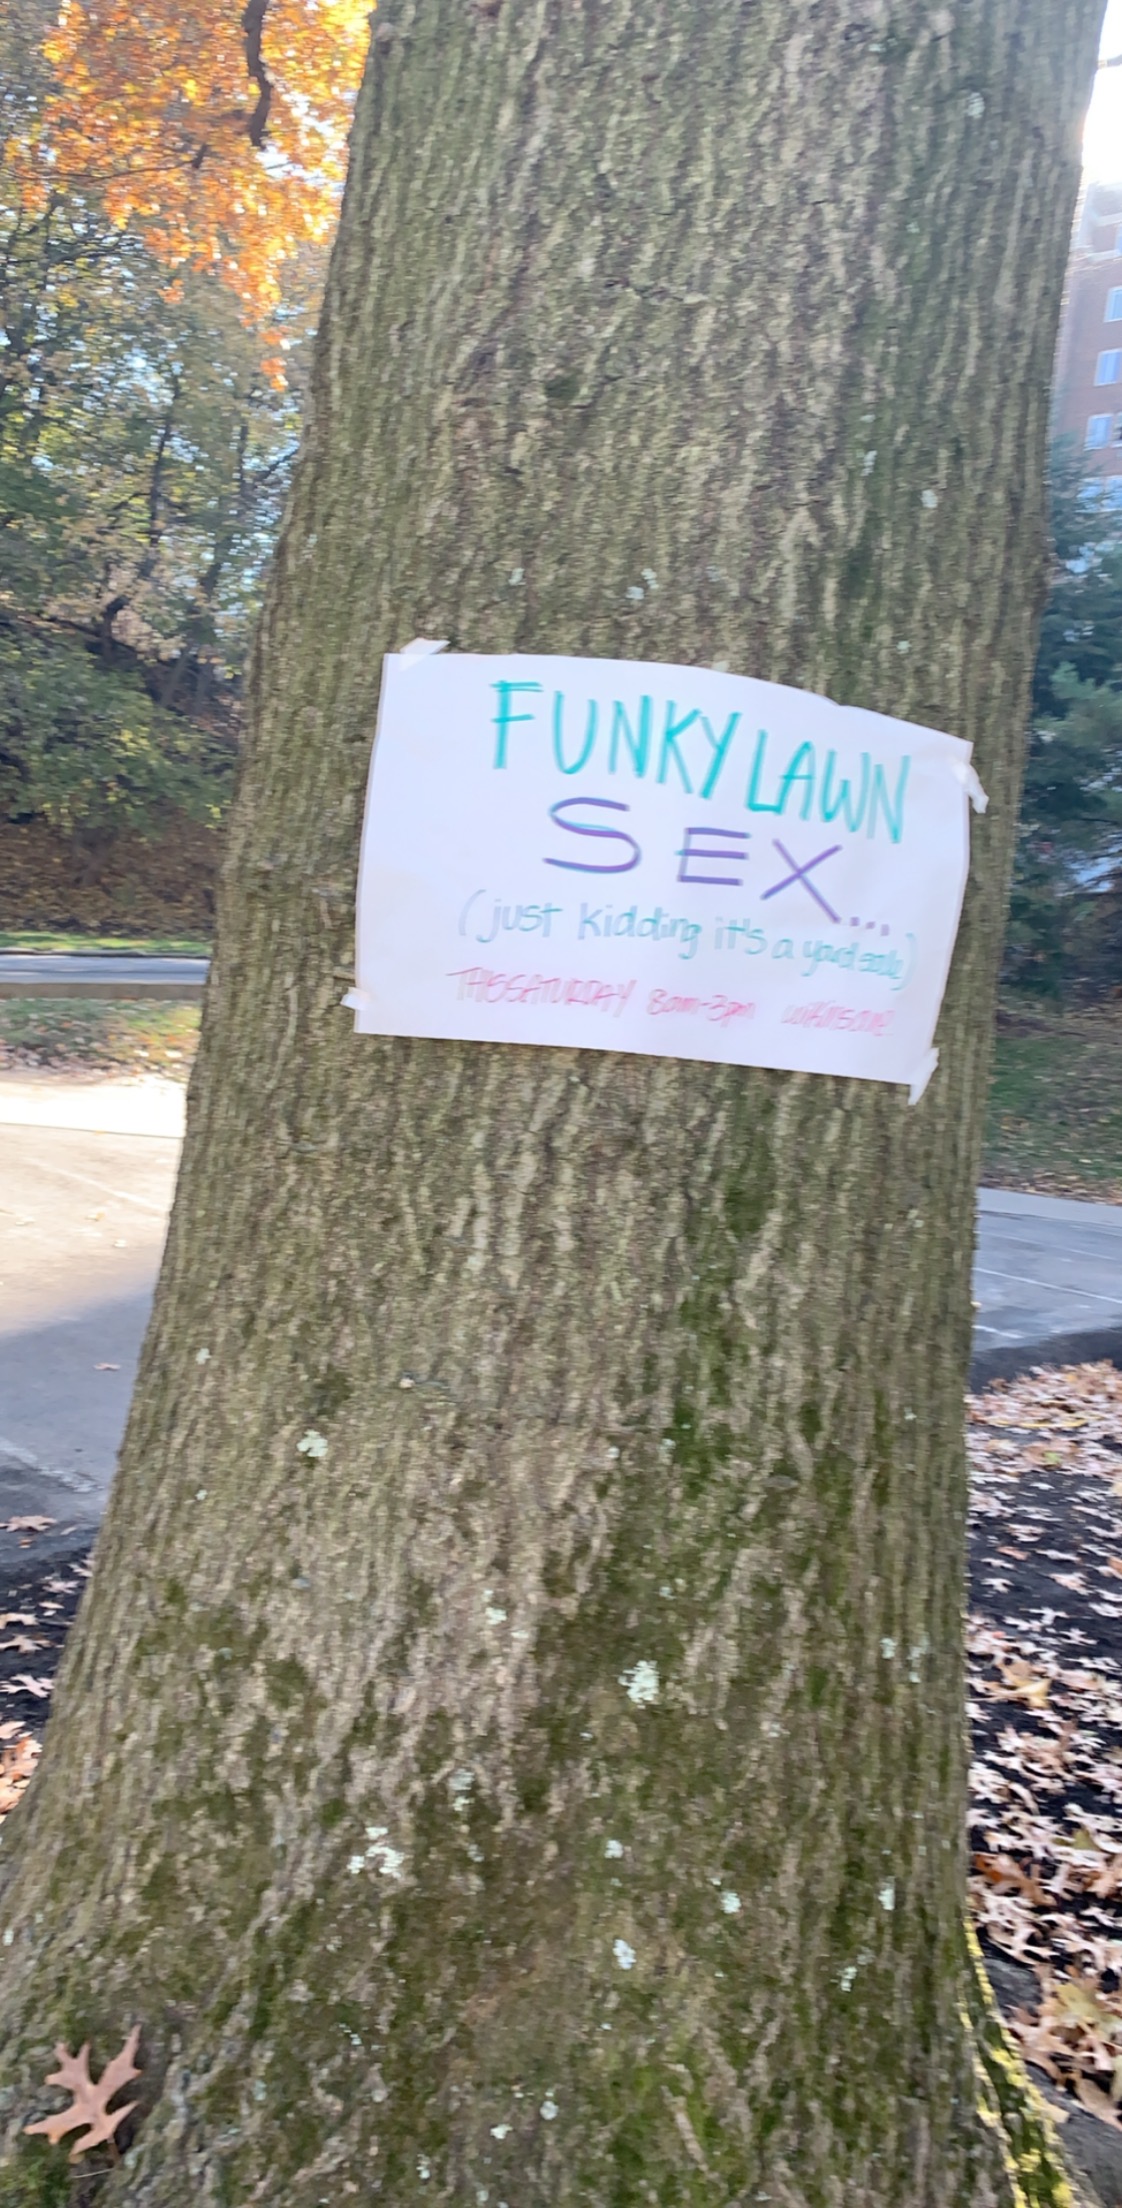 FUNKY LAWN
SEX...
(just kidding it's a yard sale)
THIS SATURDAY 8am-3pm